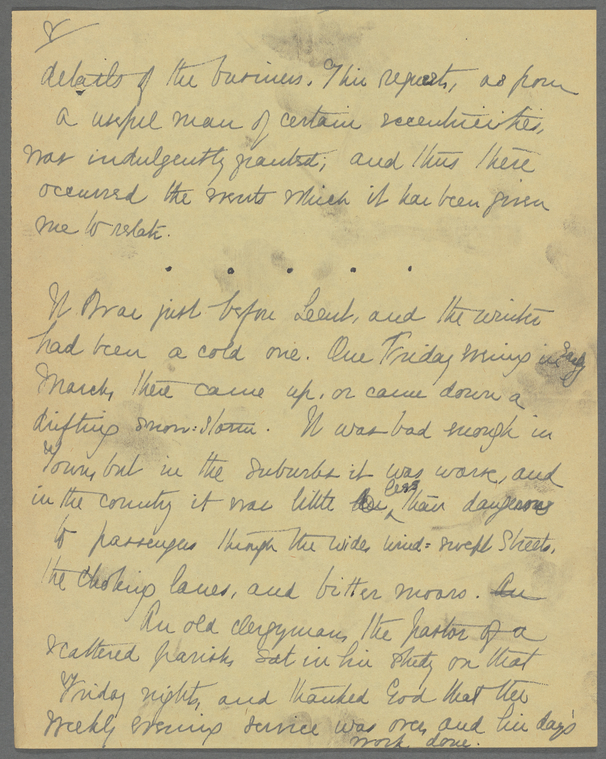 8
details of the business. This request, as from
a useful man of certain eccentricities,
was indulgently granted; and thus there
occurred the events which it has been given
me to relate.
. . . . .
It was just before Lent, and the winter
had been a cold one. One Friday evening in early
March, there came up, or came down a
drifting snow-storm. It was bad enough in
Town, but in the suburbs it was worse, and
in the country it was little less than dangerous
to passengers through the wide, wind-swept streets,
the choking lanes, and bitter moors. An
An old clergyman, the pastor of a
scattered parish, sat in his study on that
Friday night, and thanked God that the
weekly evening service was over, and his day's
work done.